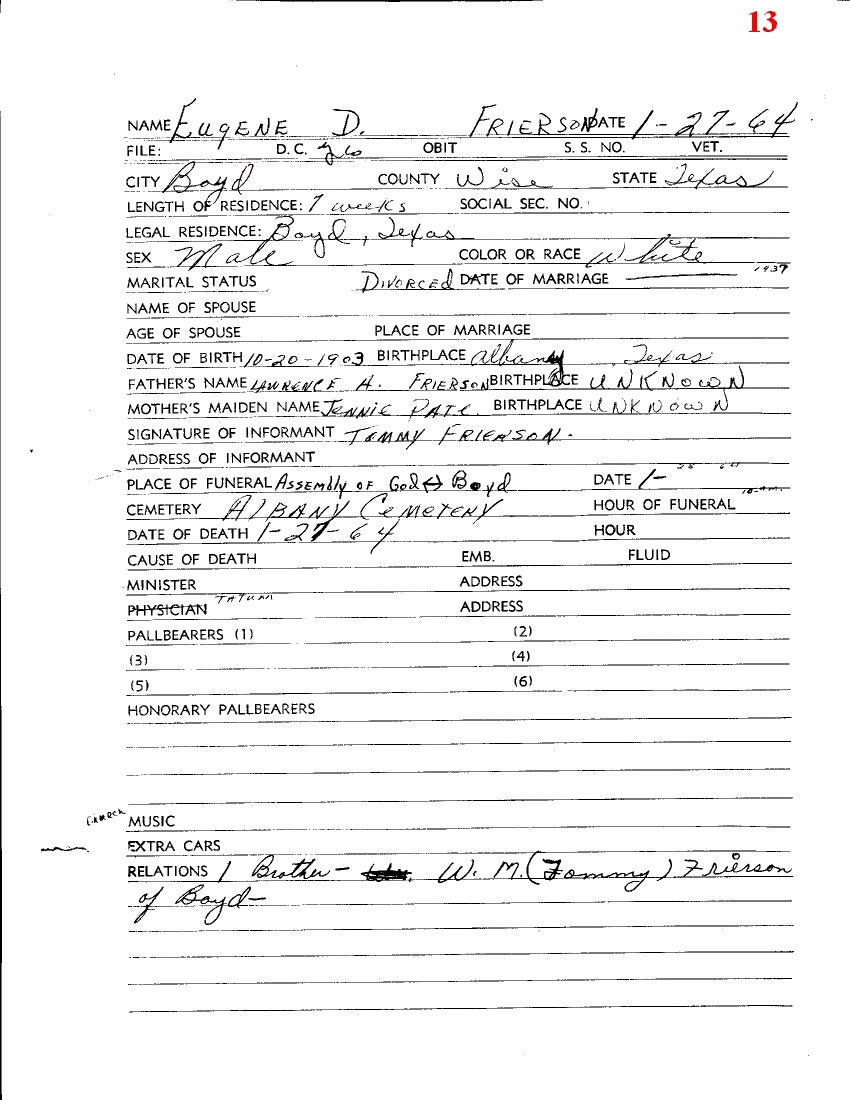 13
NAME EUGENE D. FRIERSON DATE 1-27-64
FILE: D.C. OBIT S. S. NO. VET.
CITY Boyd COUNTY Wise STATE Texas
LENGTH OF RESIDENCE: 7 weeks SOCIAL SEC. NO.
LEGAL RESIDENCE: Boyd, Texas
SEX Male COLOR OR RACE White
MARITAL STATUS DIVORCED DATE OF MARRIAGE 1937
NAME OF SPOUSE
AGE OF SPOUSE PLACE OF MARRIAGE
DATE OF BIRTH 10-20-1903 BIRTHPLACE Albany, Texas
FATHER'S NAME LAWRENCE A. FRIERSON BIRTHPLACE UNKNOWN
MOTHER'S MAIDEN NAME JENNIE PATE BIRTHPLACE UNKNOWN
SIGNATURE OF INFORMANT TOMMY FRIERSON.
ADDRESS OF INFORMANT
PLACE OF FUNERAL Assembly of God Boyd DATE 1-
CEMETERY AlBANY CEMETERY HOUR OF FUNERAL 10-A.M.
DATE OF DEATH 1-27-64 HOUR
CAUSE OF DEATH EMB. FLUID
MINISTER ADDRESS
PHYSICIAN TATUM ADDRESS
PALLBEARERS (1) (2)
(3) (4)
(5) (6)
HONORARY PALLBEARERS
CHURCH MUSIC
EXTRA CARS
RELATIONS 1 Brother- W. M. (Tommy) Frierson
of Boyd-